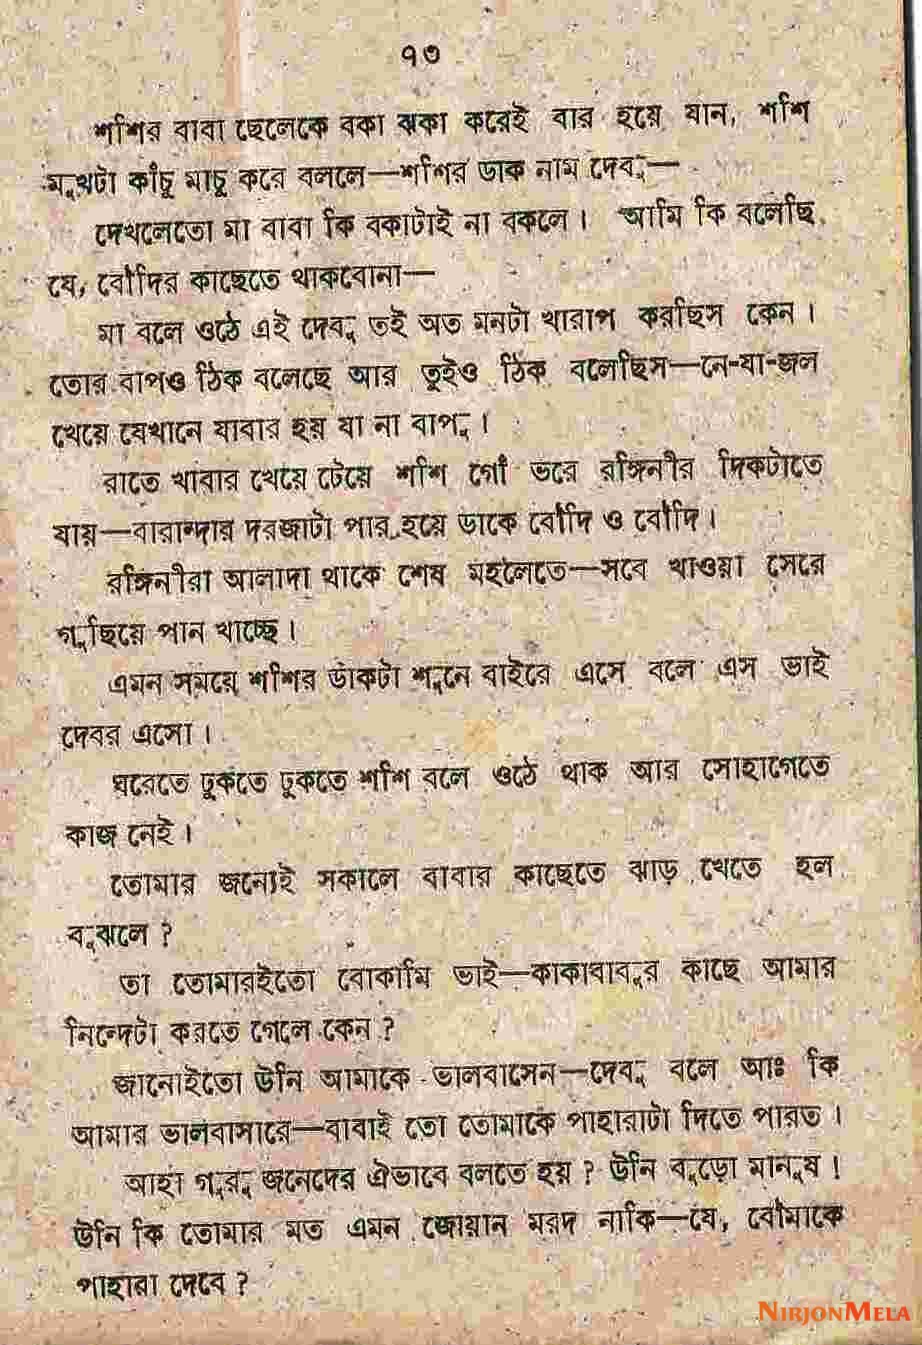 ৭৩
শশির বাবা ছেলেকে বকা ঝকা করেই বার হয়ে যান, শশি
মুখটা কাঁচু মাচু করে বললে—শশির ডাক নাম দেবু—
দেখলেতো মা বাবা কি বকাটাই না বকলে। আমি কি বলেছি
যে, বৌদির কাছেতে থাকবোনা—
মা বলে ওঠে এই দেবু তই অত মনটা খারাপ করছিস কেন।
তোর বাপও ঠিক বলেছে আর তুইও ঠিক বলেছিস—নে-যা-জল
খেয়ে যেখানে যাবার হয় যা না বাপু।
রাতে খাবার খেয়ে টেয়ে শশি গোঁ ভরে রঙ্গিনীর দিকটাতে
যায়—বারান্দার দরজাটা পার হয়ে ডাকে বৌদি ও বৌদি।
রঙ্গিনীরা আলাদা থাকে শেষ মহলেতে—সবে খাওয়া সেরে
গুছিয়ে পান খাচ্ছে।
এমন সময়ে শশির ডাকটা শুনে বাইরে এসে বলে এস ভাই
দেবর এসো।
ঘরেতে ঢুকতে ঢুকতে শশি বলে ওঠে থাক আর সোহাগেতে
কাজ নেই।
তোমার জন্যেই সকালে বাবার কাছেতে ঝাড় খেতে হল
বুঝলে?
তা তোমারইতো বোকামি ভাই—কাকাবাবুর কাছে আমার
নিন্দেটা করতে গেলে কেন?
জানোইতো উনি আমাকে ভালবাসেন—দেবু বলে আঃ কি
আমার ভালবাসারে—বাবাই তো তোমাকে পাহারাটা দিতে পারত।
আহা গুরু জনেদের ঐভাবে বলতে হয়? উনি বুড়ো মানুষ!
উনি কি তোমার মত এমন জোয়ান মরদ নাকি—যে, বৌমাকে
পাহারা দেবে?
NIRJONMELA